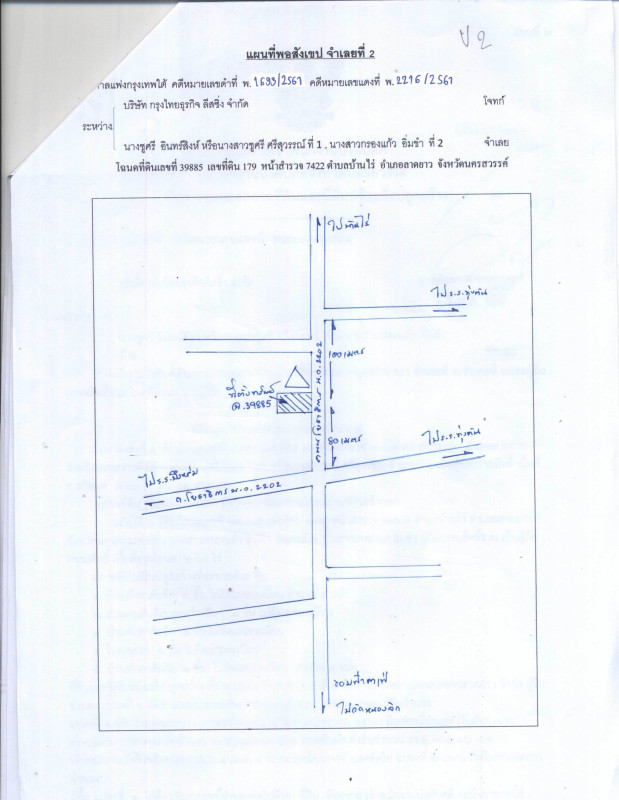 ป 2
แผนที่พอสังเขป จำเลยที่ 2
าลแพ่งกรุงเทพใต้ คดีหมายเลขดำที่ พ.1633/2561 คดีหมายเลขแดงที่ พ.2216/2561
บริษัท กรุงไทยธุรกิจ ลีสซิ่ง จำกัด โจทก์
ระหว่าง
นางชูศรี อินทร์สิงห์ หรือนางสาวชูศรี ศรีสุวรรณ์ ที่ 1 , นางสาวกรองแก้ว อิ่มขำ ที่ 2 จำเลย
โฉนดที่ดินเลขที่ 39885 เลขที่ดิน 179 หน้าสำรวจ 7422 ตำบลบ้านไร่ อำเภอลาดยาว จังหวัดนครสวรรค์
ไปบ้านไร่
ไป ร.ร.ทุ่งตัน
100 เมตร
ถนนโยธาธิการ น.ว. 2202
ที่ตั้งทรัพย์
ฉ.39885
80 เมตร
ไป ร.ร.ทุ่งตัน
ไป ร.ร.
ถ.โยธาธิการ น.ว. 2202
ไปวัดหนองจิก